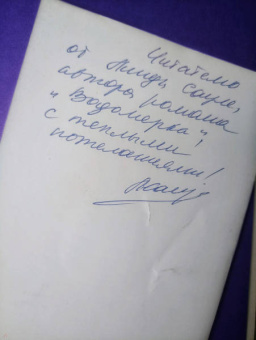 Читателю
от Линды Сауле,
автора романа
"Водомерка",
с теплыми
пожеланиями!